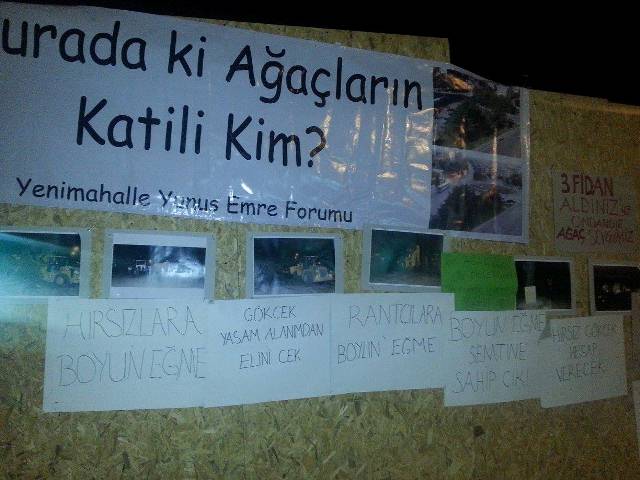 urada ki Ağaçların
Katili Kim?
Yenimahalle Yunus Emre Forumu
3 FİDAN
ALDINIZ
AĞAÇ
HIRSIZLARA
BOYUN EĞME
GÖKÇEK
YAŞAM ALANIMDAN
ELİNİ ÇEK
RANTÇILARA
BOYUN EĞME
BOYUN EĞME
SEMTİNE
SAHİP ÇIK!
HIRSIZ GÖKÇEK
HESAP
VERECEK